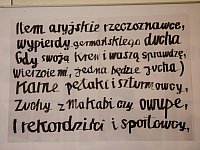 Hem aryjskie rzeczoznawce,
Wypierdy germańskiego ducha
(Gdy swoją krew i waszą sprawdzę,
Wierzcie mi, jedna będzie jucha)
Karne pętaki i szturmowcy,
Zuchy z Makabi czy Owupe,
I rekordziści i sportowcy,